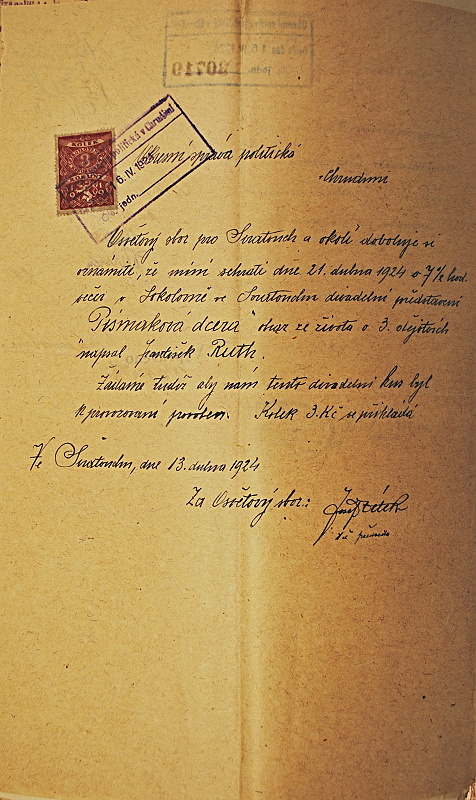 KOLEK
3
politická v Chrudimi
16. IV. 1924
čís. jedn.
Okresní správa politická
Chrudim
Osvětový sbor pro Svratouch a okolí dovoluje si
oznámiti, že míní sehráti dne 21. dubna 1924 o 7½ hod.
večer v Sokolovně ve Svratouchu divadelní představení
"Písmákova dcera" obraz ze života o 3. dějstvích
napsal František Ruth.
Žádáme tudíž aby nám tento divadelní kus byl
k provozování povolen. Kolek 3 Kč se přikládá
Ve Svratouchu, dne 13. dubna 1924
Za Osvětový sbor:
t.č. předseda